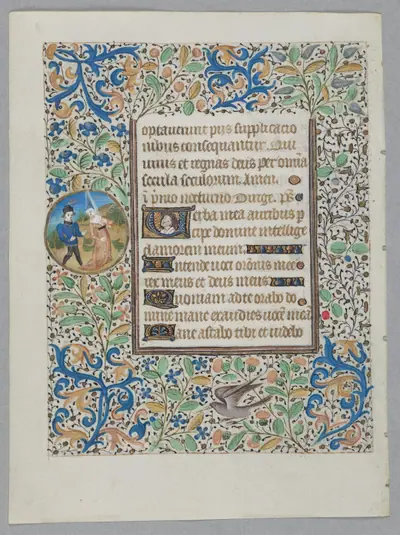 optaverunt piis supplicatio
nibus consequantur. Qui
vivis et regnas deus per omnia
secula seculorum. Amen.
In primo nocturno Dirige. ps.
Verba mea auribus p
cipe domine intellige
clamorem meum
Intende voci orationis mee
rex meus et deus meus
Quoniam ad te orabo do
mine mane exaudies vocem mea
Mane astabo tibi et videbo